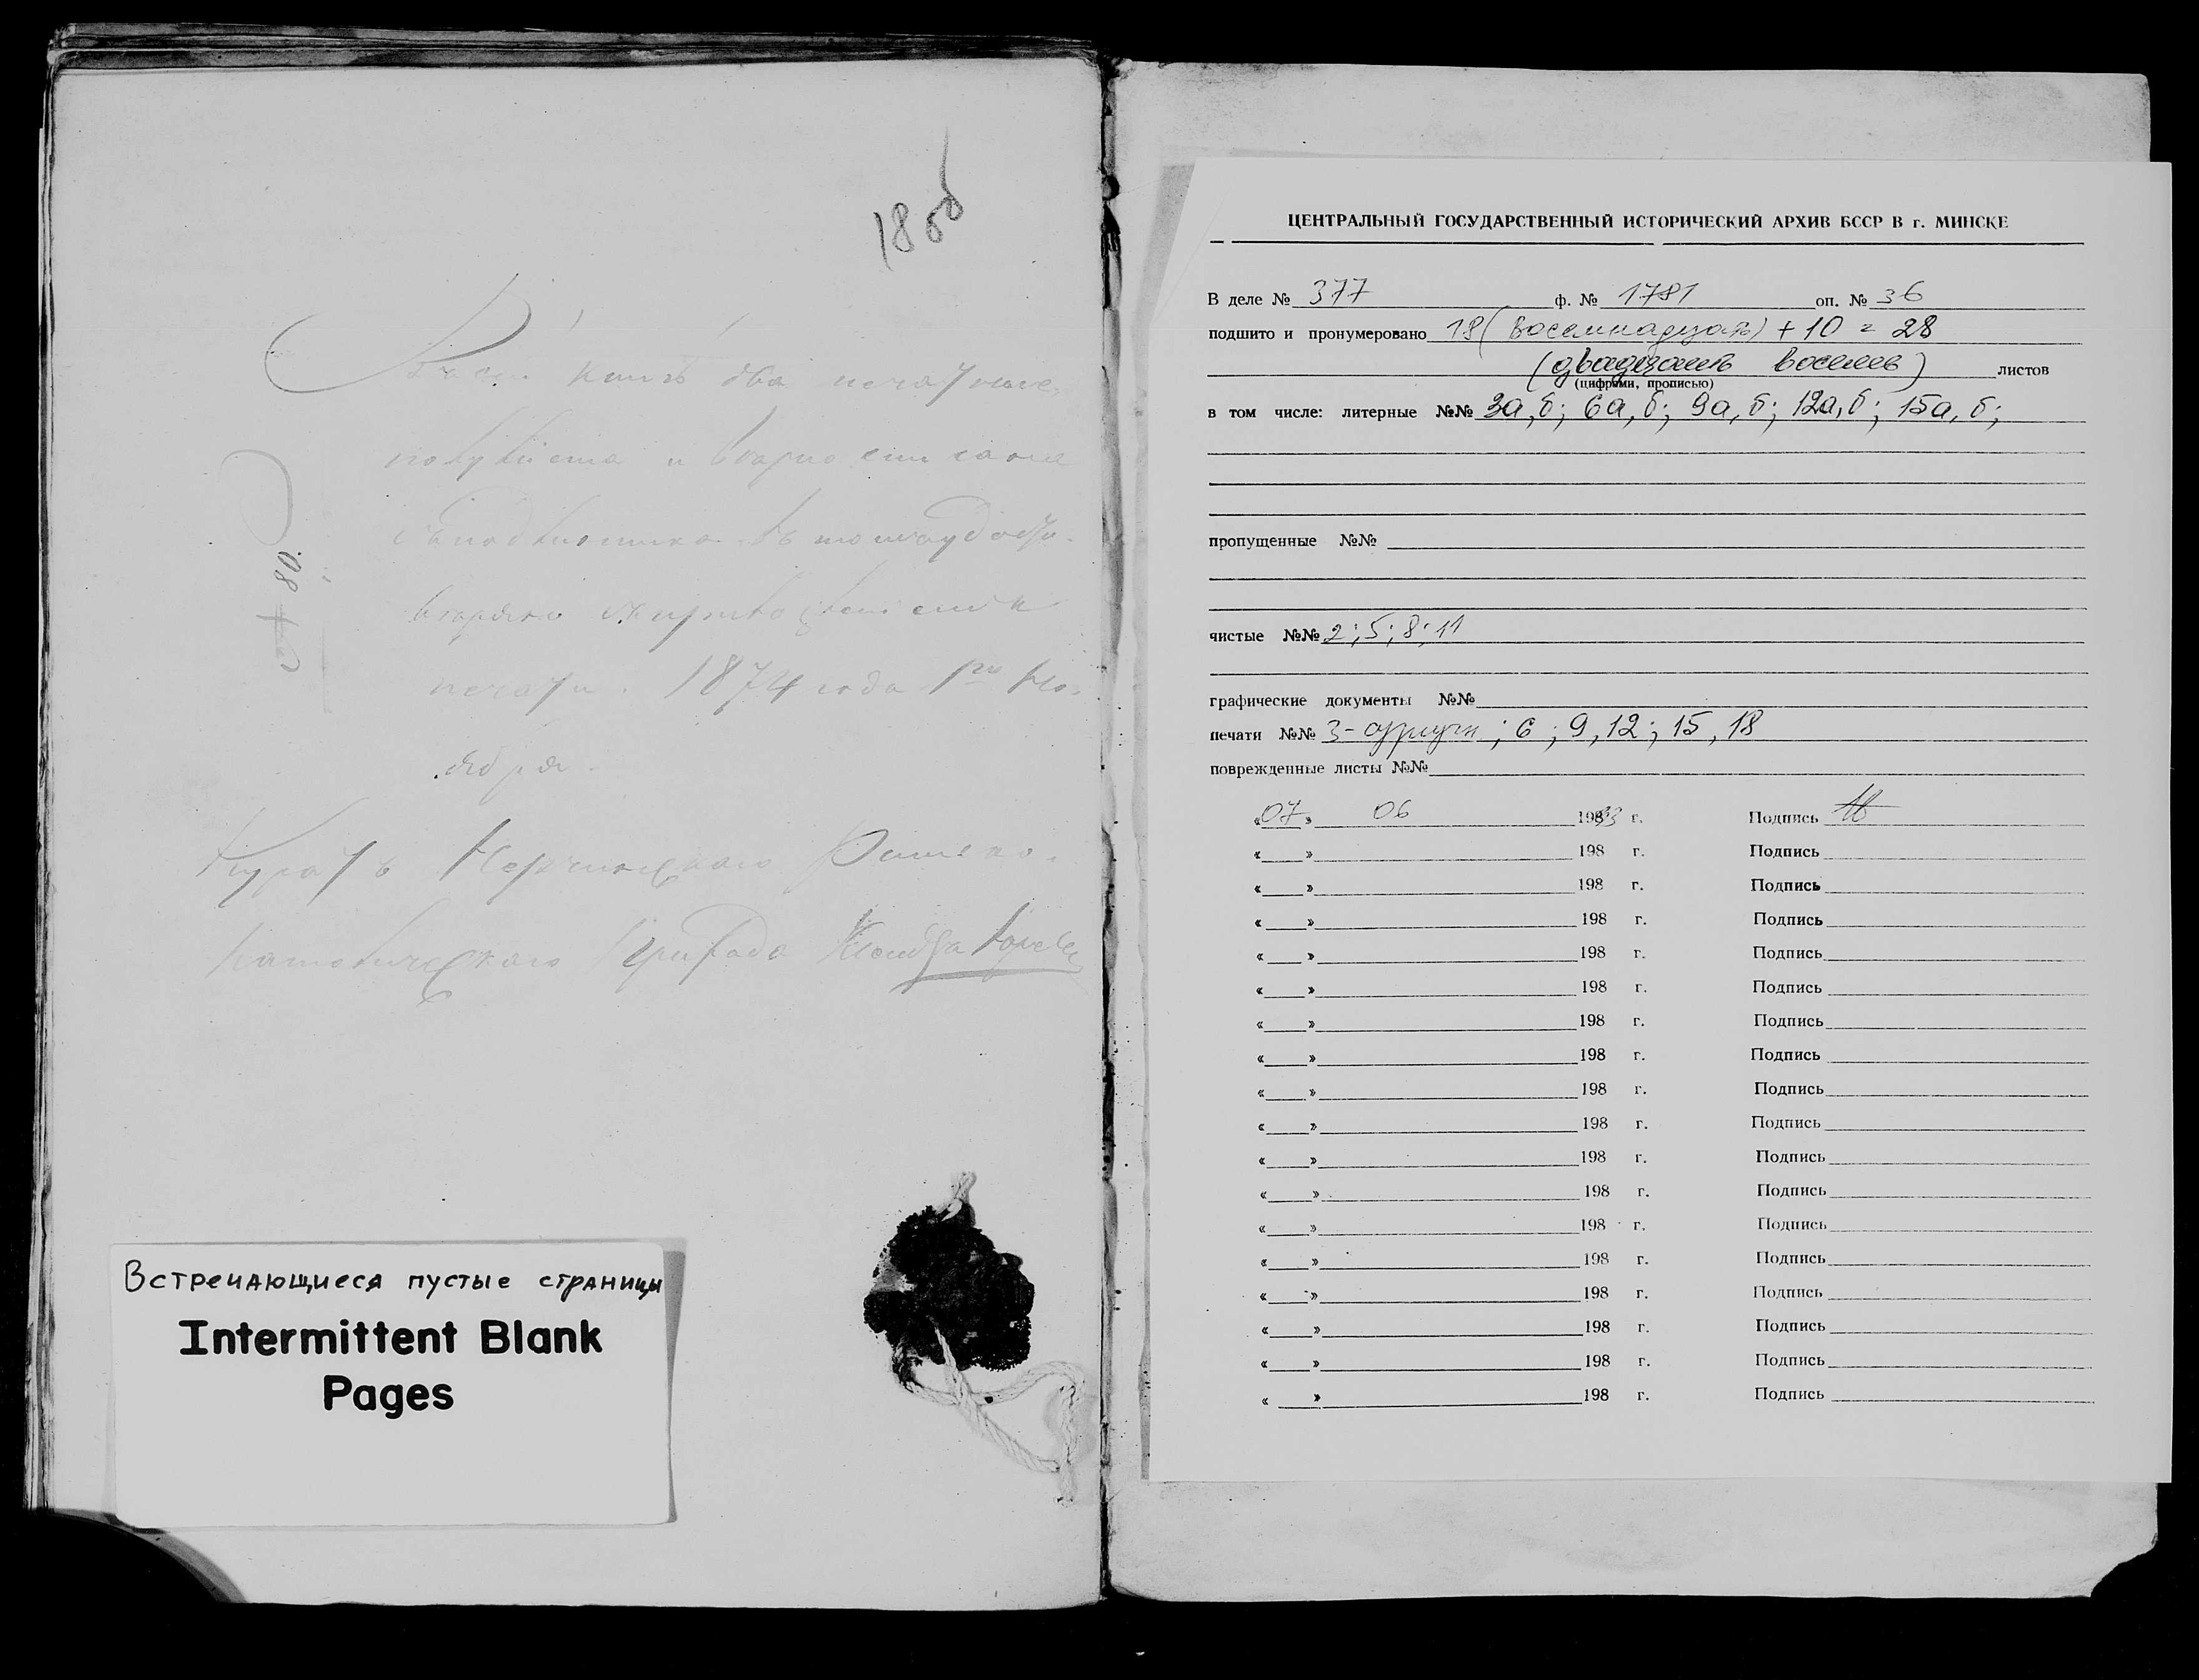 18 об
книгѣ два печатные
полулиста и
въ томъ удосто-
печати. 1874 года 1го Но-
ября.
Куратъ Нерчинскаго Римско-
Католическаго Прихода Ксендзъ
80.
Встречающиеся пустые страницы
Intermittent Blank
Pages
ЦЕНТРАЛЬНЫЙ ГОСУДАРСТВЕННЫЙ ИСТОРИЧЕСКИЙ АРХИВ БССР В г. МИНСКЕ
В деле № 377 ф. № 1781 оп. № 36
подшито и пронумеровано 18 (восемнадцать) + 10 = 28
(двадцать восемь) листов
(цифрами, прописью)
в том числе: литерные №№ 3а, б; 6а, б; 9а, б; 12а, б; 15а, б;
пропущенные №№
чистые №№ 2; 5; 8; 11
графические документы №№
печати №№ 3- ; 6 ; 9, 12; 15, 18
поврежденные листы №№
«07» 06 1983 г. Подпись
« » 198 г. Подпись
« » 198 г. Подпись
« » 198 г. Подпись
« » 198 г. Подпись
« » 198 г. Подпись
« » 198 г. Подпись
« » 198 г. Подпись
« » 198 г. Подпись
« » 198 г. Подпись
« » 198 г. Подпись
« » 198 г. Подпись
« » 198 г. Подпись
« » 198 г. Подпись
« » 198 г. Подпись
« » 198 г. Подпись
« » 198 г. Подпись
« » 198 г. Подпись